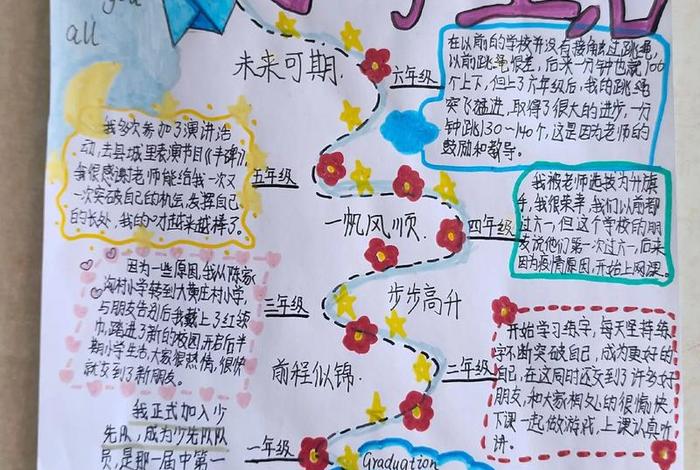 you
all
生活
未来可期.
六年级
在以前的学校并没有接触过跳绳,
以前跳绳很差，后来一分钟也就100
个上下，但上了六年级后，我的跳绳
突飞猛进，取得了很大的进步，一分
钟跳130~140个，这是因为老师的
鼓励和教导。
我多次参加了演讲活
动，去县城里表演节目《丰碑》,
我很感谢老师能给我一次又
一次突破自己的机会，发挥自己
的长处，我的口才越来越棒了.
五年级
一帆风顺.
四年级
我被老师选拔为升旗
手，我很荣幸，我们以前都
过六一，但这个学校的朋
友说他们第一次过六一，后来
因为疫情原因，开始上网课。
因为一些原因，我从陈家
沟村小学转到大黄庄村小学,
与朋友告别后我戴上了红领
巾，踏进了新的校园，开启后半
期小学生活，大家很热情，很快
就交到了新朋友。
三年级
步步高升
前程似锦.
二年级
开始学习练字，每天坚持练
字不断突破自己，成为更好的
自己，在这同时还交到了许多好
朋友，和大家相处的很愉快，
下课一起做游戏，上课认真听
讲。
我正式加入少
先队，成为少先队队
员，是那一届中第一
一年级
Graduation